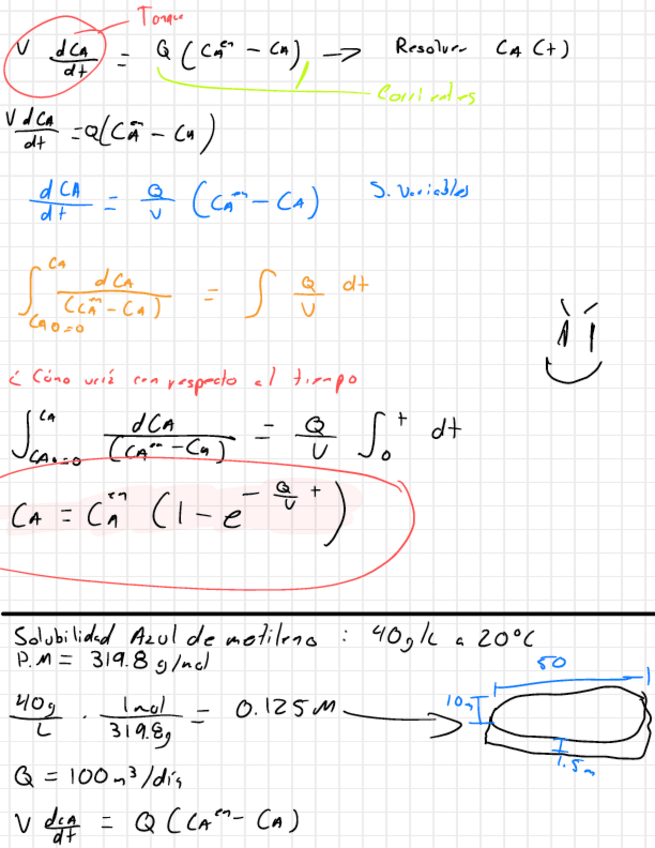 Torque
V dCA/dt = Q (CA^en - CA) → Resolver CA (t)
Corrientes
V dCA/dt = Q (CA^en - CA)
dCA/dt = Q/V (CA^en - CA) S. Variables
∫_{CA0=0}^{CA} dCA/(CA^en - CA) = ∫ Q/V dt
¿ Cómo variá con respecto al tiempo
∫_{CA0=0}^{CA} dCA/(CA^en - CA) = Q/V ∫_0^t dt
CA = CA^en (1 - e^{-Q/V t})
Solubilidad Azul de metileno : 40g/L a 20°C
P.M = 319.8 g/mol
50
40g/L · 1mol/319.8g = 0.125 M → 10m
1.5m
Q = 100 m³/día
V dCA/dt = Q (CA^en - CA)